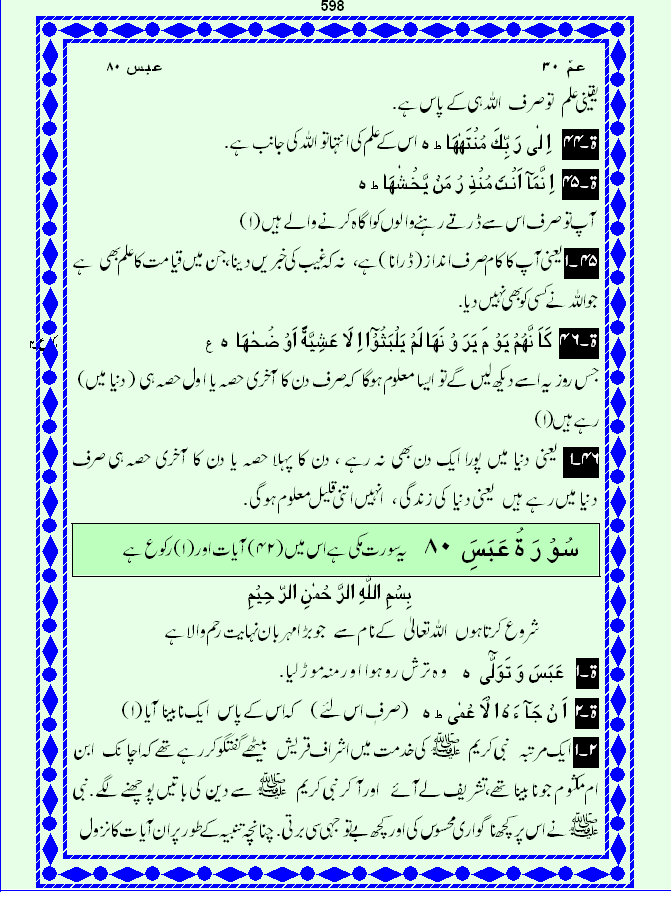 598
عمّ ۳۰ عبس ۸۰
یقینی علم تو صرف اللہ ہی کے پاس ہے۔
ۃ۔۴۴ اِلٰی رَبِّکَ مُنۡتَہٰہَا ؕ ہ اس کے علم کی انتہا تو اللہ کی جانب ہے۔
ۃ۔۴۵ اِنَّمَاۤ اَنۡتَ مُنۡذِرُ مَنۡ یَّخۡشٰہَا ؕ ہ
آپ تو صرف اس سے ڈرتے رہنے والوں کو آگاہ کرنے والے ہیں (۱)
۴۵۔۱ یعنی آپ کا کام صرف انداز (ڈرانا) ہے، نہ کہ غیب کی خبریں دینا، جن میں قیامت کا علم بھی ہے
جو اللہ نے کسی کو بھی نہیں دیا۔
ۃ۔۴۶ کَاَنَّہُمۡ یَوۡمَ یَرَوۡنَہَا لَمۡ یَلۡبَثُوۡۤا اِلَّا عَشِیَّۃً اَوۡ ضُحٰہَا ہ ع
جس روز یہ اسے دیکھ لیں گے تو ایسا معلوم ہوگا کہ صرف دن کا آخری حصہ یا اول حصہ ہی (دنیا میں)
رہے ہیں (۱)
۴۶۔۱ یعنی دنیا میں پورا ایک دن بھی نہ رہے، دن کا پہلا حصہ یا دن کا آخری حصہ ہی صرف
دنیا میں رہے ہیں یعنی دنیا کی زندگی، انہیں اتنی قلیل معلوم ہوگی۔
سُوۡرَۃُ عَبَسَ ۸۰ یہ سورت مکی ہے اس میں (۴۲) آیات اور (۱) رکوع ہے
بِسۡمِ اللّٰہِ الرَّحۡمٰنِ الرَّحِیۡمِ
شروع کرتا ہوں اللہ تعالیٰ کے نام سے جو بڑا مہربان نہایت رحم والا ہے
ۃ۔۱ عَبَسَ وَ تَوَلّٰۤی ہ وہ ترش رو ہوا اور منہ موڑ لیا۔
ۃ۔۲ اَنۡ جَآءَہُ الۡاَعۡمٰی ؕ ہ (صرف اس لئے) کہ اس کے پاس ایک نابینا آیا (۱)
۲۔۱ ایک مرتبہ نبی کریم ﷺ کی خدمت میں اشراف قریش بیٹھے گفتگو کر رہے تھے کہ اچانک ابن
ام مکتوم جو نابینا تھے، تشریف لے آئے اور آ کر نبی کریم ﷺ سے دین کی باتیں پوچھنے لگے۔ نبی
ﷺ نے اس پر کچھ ناگواری محسوس کی اور کچھ بے توجہی سی برتی۔ چنانچہ تنبیہ کے طور پر ان آیات کا نزول